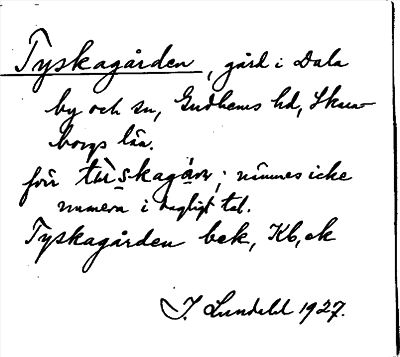 Tyskagården, gård i Dala
by och sn, Gudhems hd, Skara-
borgs län.
förr tùskagán; nämnes icke
numera i dagligt tal.
Tyskagården bek, Kb, ek
J. Lundahl 1927.